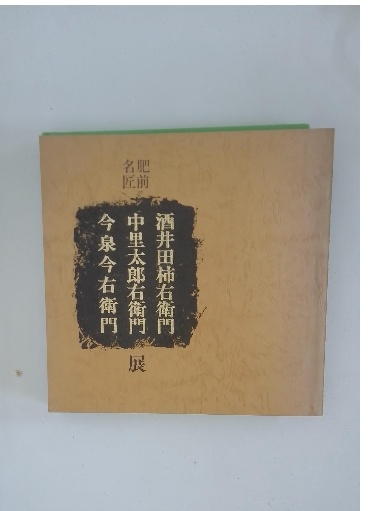 肥前
名匠
酒井田柿右衛門
中里太郎右衛門
今泉今右衛門
展